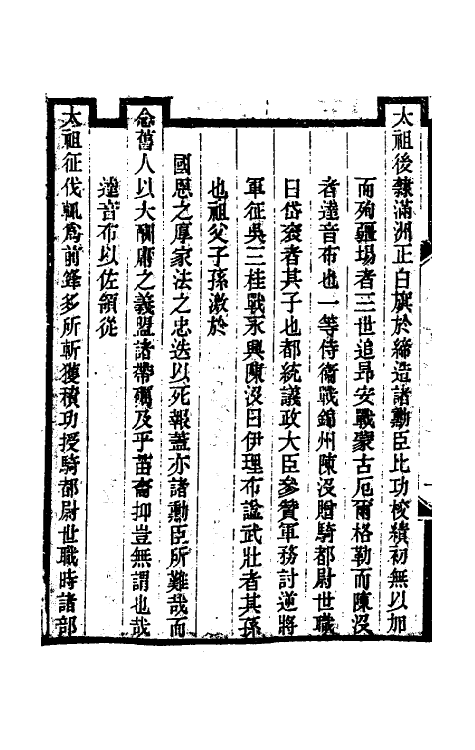 太祖後隸滿洲正白旗於締造諸勳臣比功挍績初無以加
而殉疆場者三世追昂安戰蒙古厄爾格勒而陳沒
者達音布也一等侍衛戰錦州陳沒贈騎都尉世職
曰岱袞者其子也都統議政大臣參贊軍務討逆將
軍征吳三桂戰永興陳沒曰伊理布諡武壯者其孫
也祖父子孫激於
國恩之厚家法之忠迭以死報蓋亦諸勳臣所難哉而
念舊人以大酬庸之義盟諸帶礪及乎苗裔抑豈無謂也哉
達音布以佐領從
太祖征伐輒為前鋒多所斬獲積功授騎都尉世職時諸部